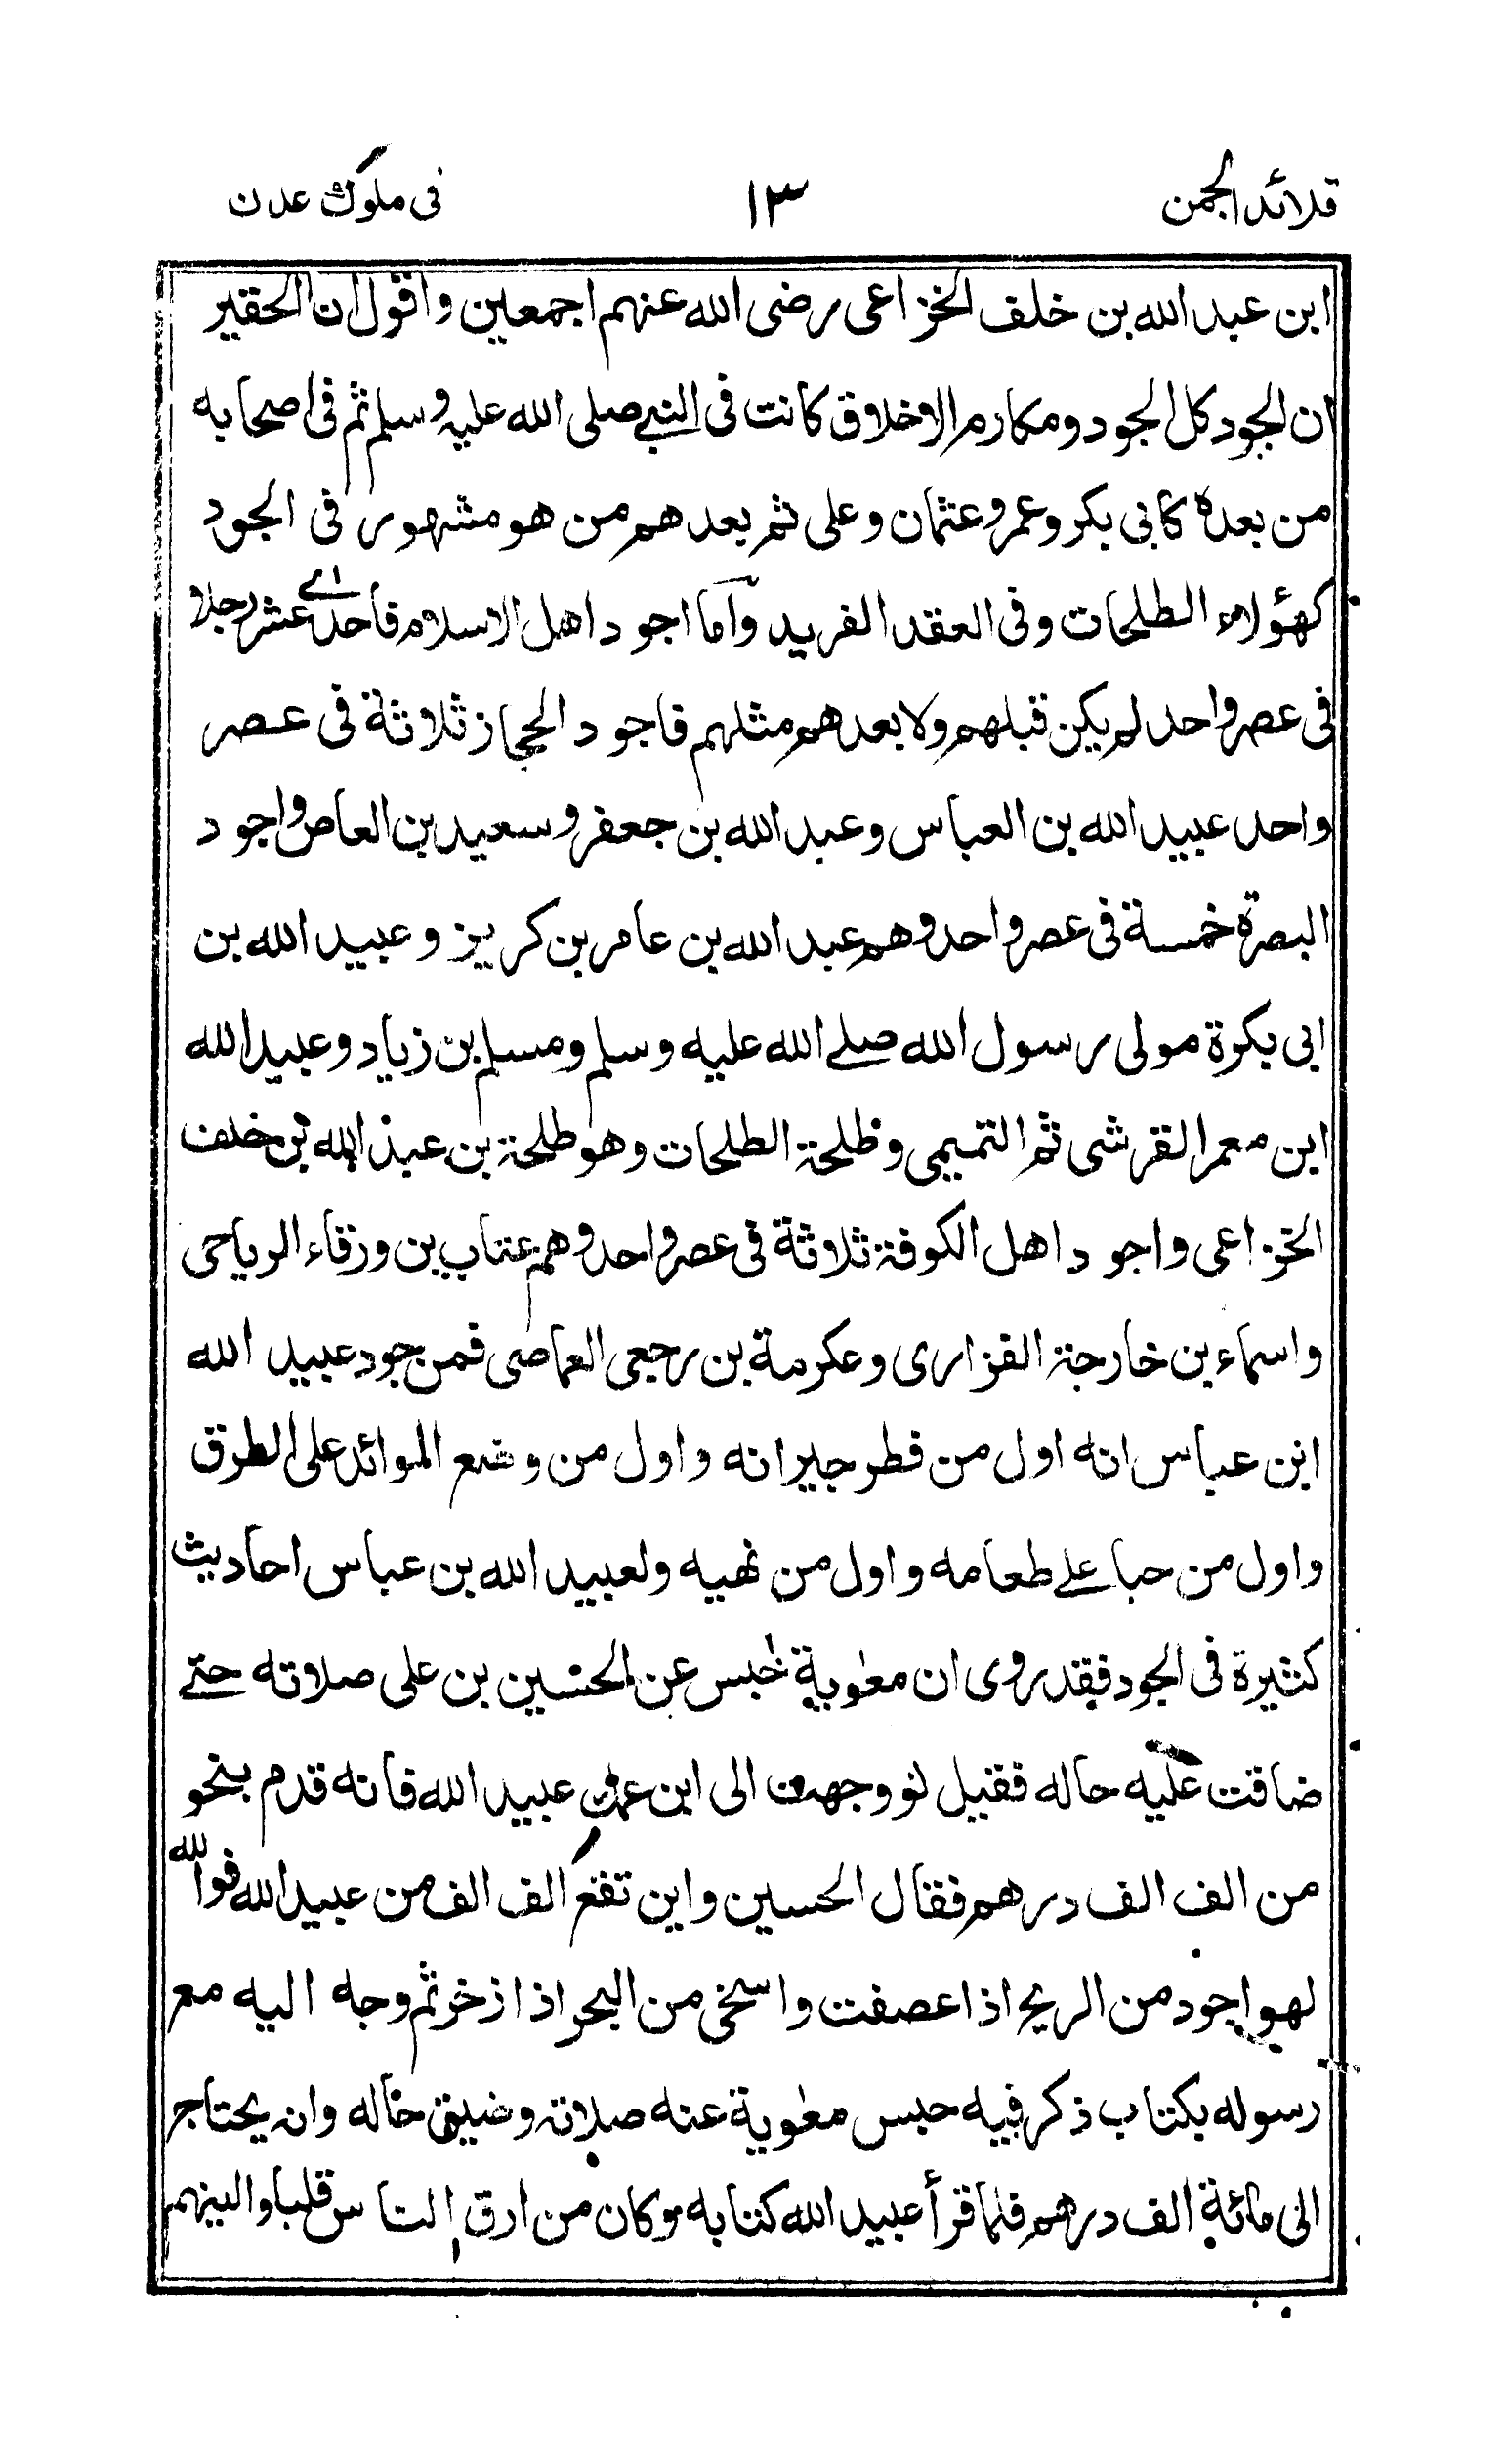 قلائد الجمن ١٣ فى ملوك عدن
ابن عبد الله بن خلف الخزاعى رضى الله عنهم اجمعين واقول ان الحقير
ان الجود كل الجود ومكارم الاخلاق كانت فى النبے صلى الله عليه وسلم ثم فى اصحابه
من بعده كابى بكر وعمر وعثمان وعلى ثم بعدهم من هو مشهور فى الجود
كهؤلاء الطلحات وفى العقد الفريد واما اجود اهل الاسلام فاحدے عشر رجلا
فى عصر واحد لم يكن قبلهم ولا بعدهم مثلهم فاجود الحجاز ثلاثة فى عصر
واحد عبيد الله بن العباس وعبد الله بن جعفر وسعيد بن العاص واجود
البصرة خمسة فى عصر واحد وهم عبد الله بن عامر بن كريز وعبيد الله بن
ابى بكرة مولى رسول الله صلے الله عليه وسلم ومسلم بن زياد وعبيد الله
ابن معمر القرشى ثم التميمى وطلحة الطلحات وهو طلحة بن عبد الله بن خلف
الخزاعى واجود اهل الكوفة ثلاثة فى عصر واحد وهم عتاب بن ورقاء الرياحى
واسماء بن خارجة الفزارى وعكرمة بن رجعى العاصى فمن جود عبيد الله
ابن عباس انه اول من فطر جيرانه واول من وضع الموائد على الطرق
واول من حبا علے طعامه واول من نهبه ولعبيد الله بن عباس احاديث
كثيرة فى الجود فقد روى ان معوية حبس عن الحسين بن على صلاته حتے
ضاقت عليه حاله فقيل لو وجهت الى ابن عمك عبيد الله فانه قدم بنحو
من الف الف درهم فقال الحسين واين تقع الف الف من عبيد الله فوالله
لهو اجود من الريح اذا عصفت واسخى من البحر اذا زخر ثم وجه اليه مع
رسوله بكتاب ذكر فيه حبس معوية عنه صلاته وضيق حاله وانه يحتاج
الى مائة الف درهم فلما قرأ عبيد الله كتابه وكان من ارق الناس قلبا والينهم